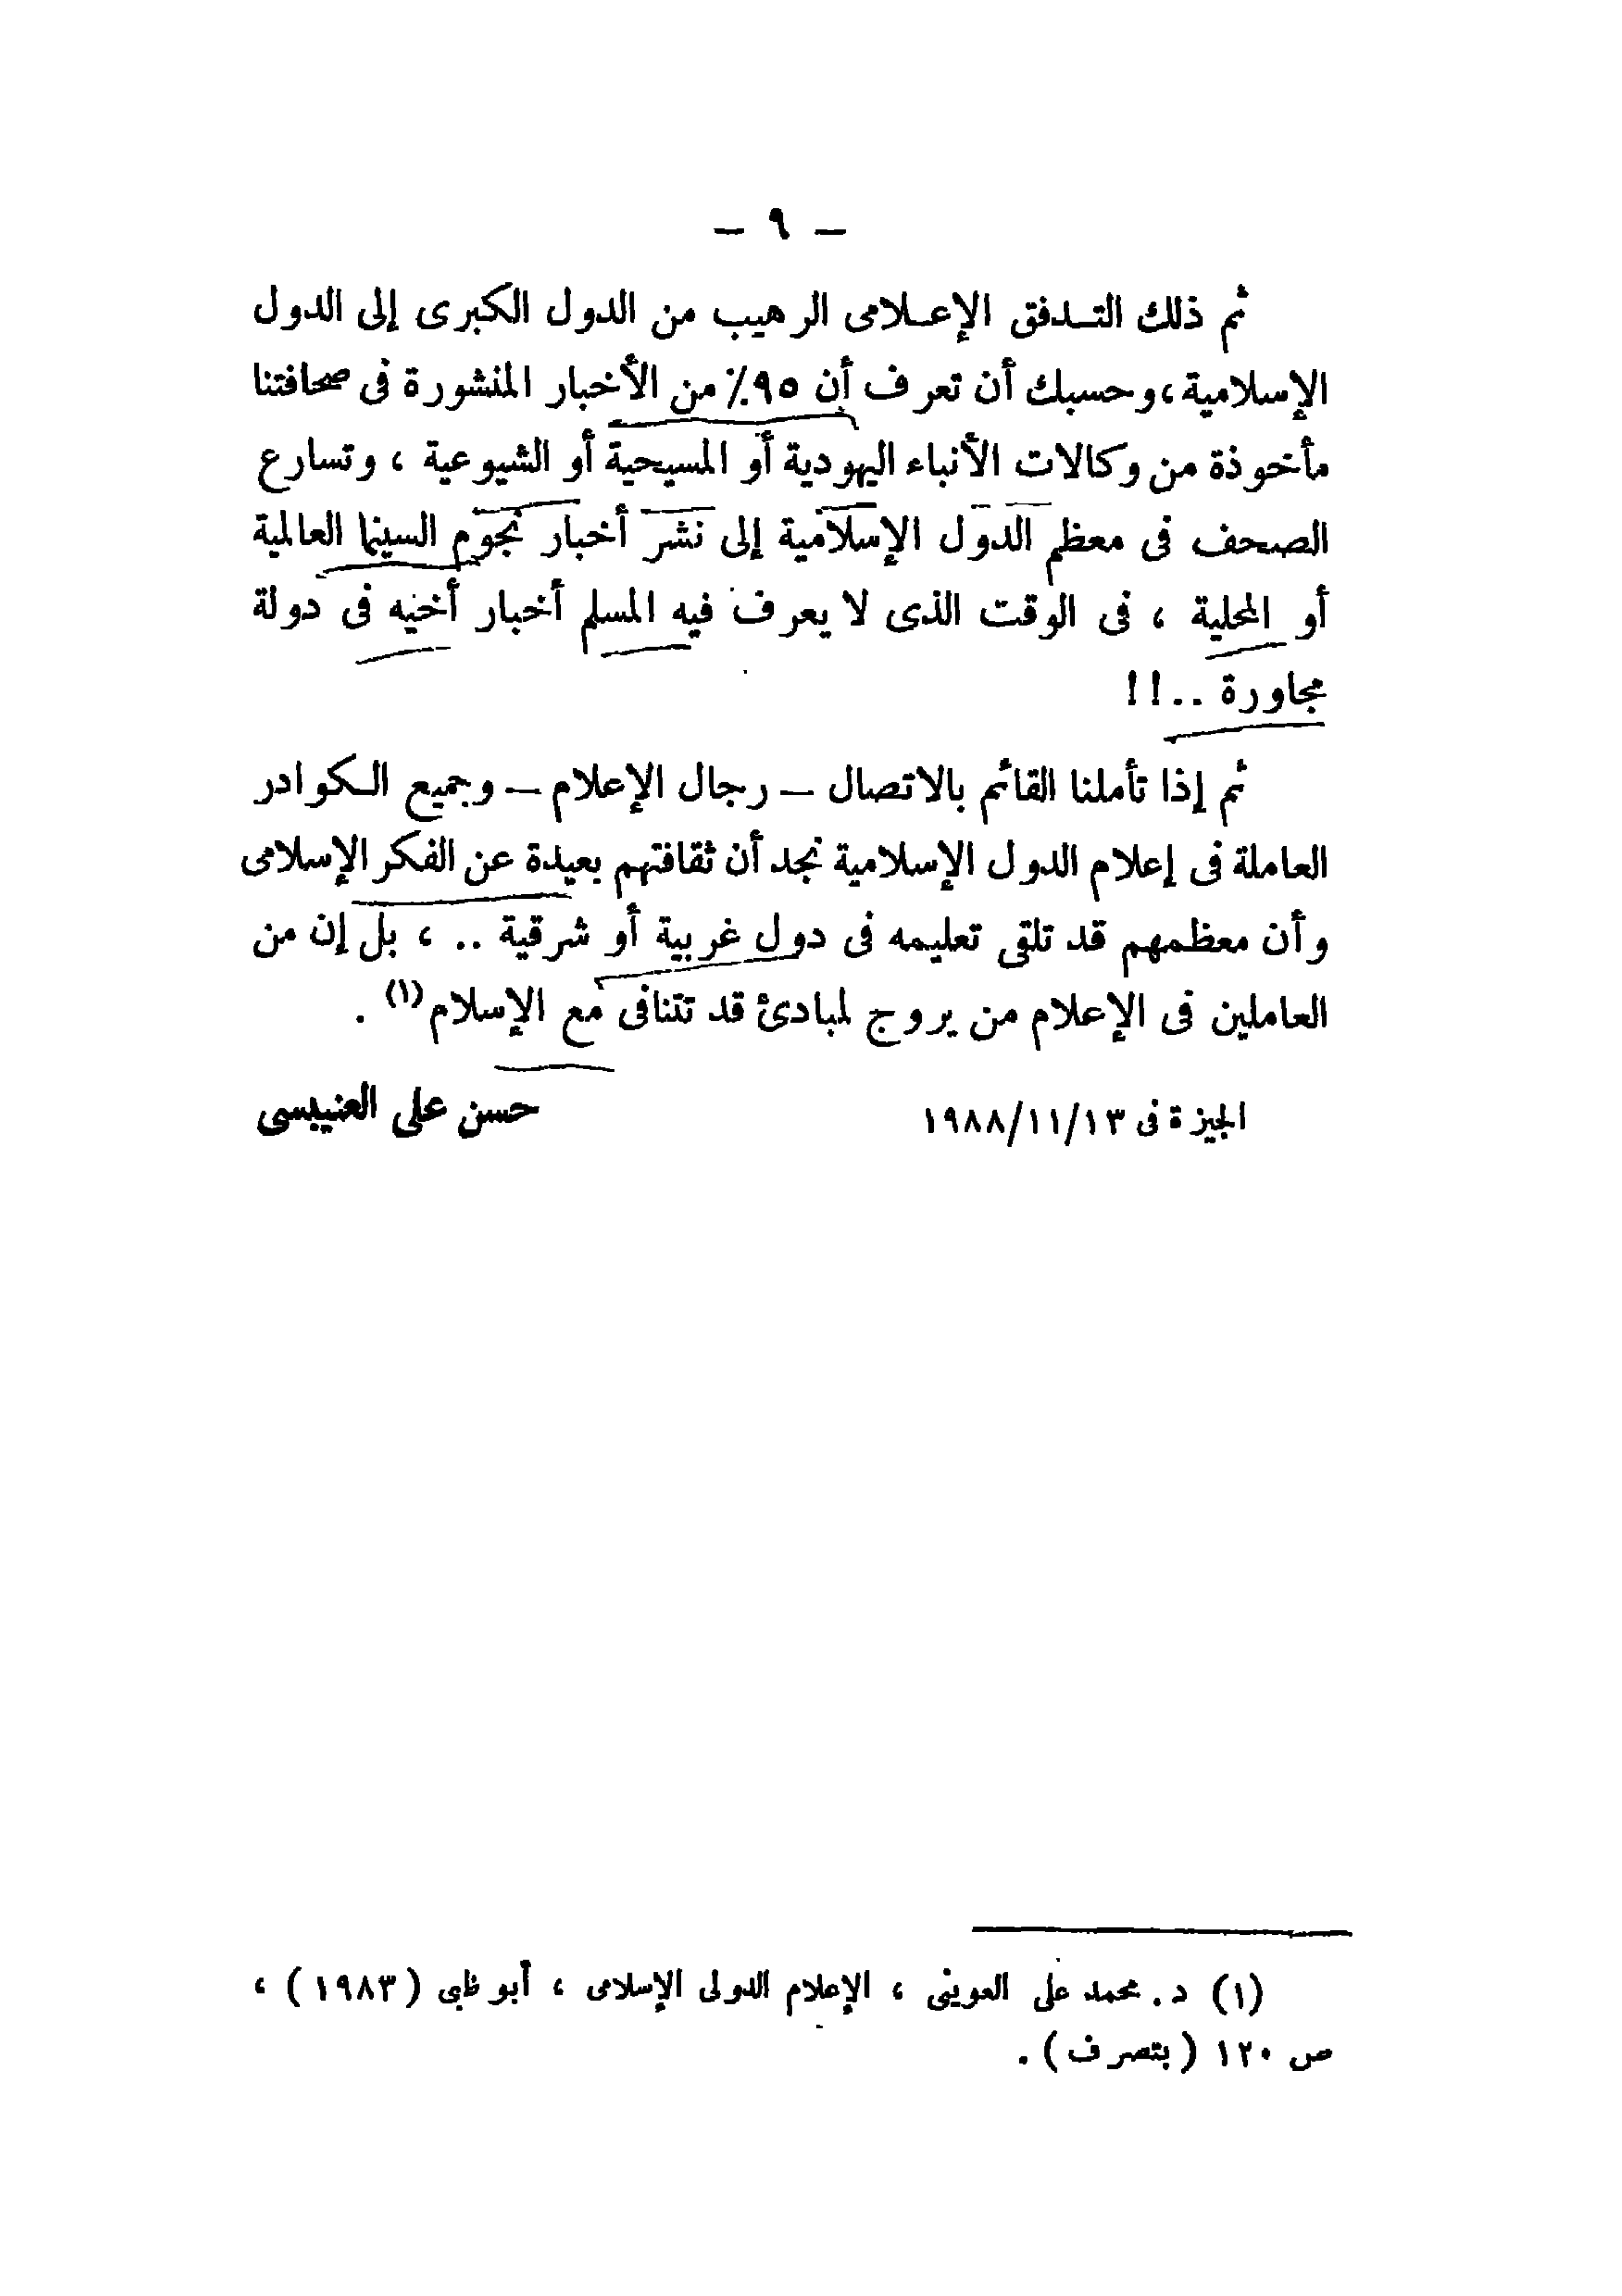 – ٩ –
ثم ذلك التدفق الإعلامى الرهيب من الدول الكبرى إلى الدول
الإسلامية، وحسبك أن تعرف أن ٩٥٪ من الأخبار المنشورة فى صحافتنا
مأخوذة من وكالات الأنباء اليهودية أو المسيحية أو الشيوعية ، وتسارع
الصحف فى معظم الدول الإسلامية إلى نشر أخبار نجوم السينما العالمية
أو المحلية ، فى الوقت الذى لا يعرف فيه المسلم أخبار أخيه فى دولة
مجاورة ..!!
ثم إذا تأملنا القائم بالاتصال – رجال الإعلام – وجميع الكوادر
العاملة فى إعلام الدول الإسلامية نجد أن ثقافتهم بعيدة عن الفكر الإسلامى
وأن معظمهم قد تلقى تعليمه فى دول غربية أو شرقية .. ، بل إن من
العاملين فى الإعلام من يروج لمبادئ قد تتنافى مع الإسلام(١) .
الجيزة فى ١٩٨٨/١١/١٣ حسن على العنيسى
(١) د. محمد على العوينى ، الإعلام الدولى الإسلامى ، أبو ظبى (١٩٨٣) ،
ص ١٢٠ (بتصرف) .